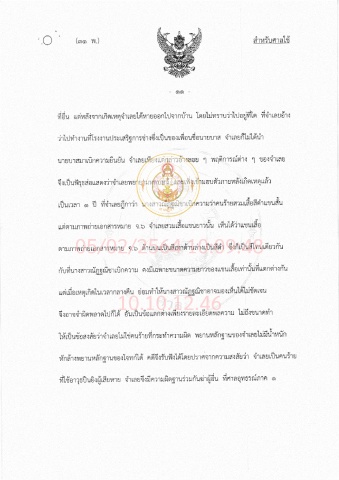 (๓๑ พ.)
สำหรับศาลใช้
- ๑๑ -
ที่อื่น แต่หลังจากเกิดเหตุจำเลยได้หายออกไปจากบ้าน โดยไม่ทราบว่าไปอยู่ที่ใด ที่จำเลยอ้าง
ว่าไปทำงานที่โรงงานประเสริฐการช่างซึ่งเป็นของเพื่อนชื่อนายบาส จำเลยก็ไม่ได้นำ
นายบาสมาเบิกความยืนยัน จำเลยเพียงแต่กล่าวอ้างลอย ๆ พฤติการณ์ต่าง ๆ ของจำเลย
จึงเป็นพิรุธส่อแสดงว่าจำเลย
หลังเกิดเหตุแล้ว
เป็นเวลา ๑ ปี ที่จำเลยฎีกาว่า นางสาวณัฏฐณิชาเบิกความว่าคนร้ายสวมเสื้อสีดำแขนสั้น
แต่ตามภาพถ่ายเอกสารหมาย จ.๖ จำเลยสวมเสื้อแขนยาวนั้น เห็นได้ว่าแขนเสื้อ
ตามภาพถ่ายเอกสารหมาย จ.๖ ด้านบนเป็นสีเทาด้านล่างเป็นสีดำ จึงถือเป็นสีโทนเดียวกัน
กับที่นางสาวณัฏฐณิชาเบิกความ คงมีเฉพาะขนาดความยาวของแขนเสื้อเท่านั้นที่แตกต่างกัน
แต่เมื่อเหตุเกิดในเวลากลางคืน ย่อมทำให้นางสาวณัฏฐณิชาอาจมองเห็นได้ไม่ชัดเจน
จึงอาจจำผิดพลาดไปก็ได้ อันเป็นข้อแตกต่างเพียงรายละเอียดพลความ ไม่ถึงขนาดทำ
ให้เป็นข้อสงสัยว่าจำเลยไม่ใช่คนร้ายที่กระทำความผิด พยานหลักฐานของจำเลยไม่มีน้ำหนัก
หักล้างพยานหลักฐานของโจทก์ได้ คดีจึงรับฟังได้โดยปราศจากความสงสัยว่า จำเลยเป็นคนร้าย
ที่ใช้อาวุธปืนยิงผู้เสียหาย จำเลยจึงมีความผิดฐานร่วมกันฆ่าผู้อื่น ที่ศาลอุทธรณ์ภาค ๑
10.10.12.46